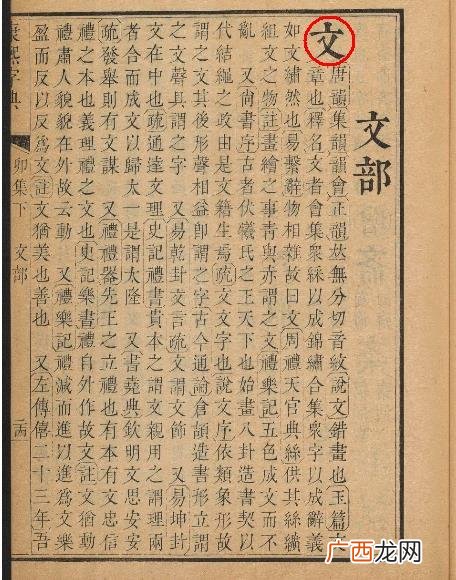 文部
文
唐韻集韻韻會正韻𠀤無分切音紋說文錯畫也玉篇文
章也釋名文者會集衆綵以成錦繡合集衆字以成辭義
如文繡然也易繫辭物相雜故曰文周禮天官典絲供其絲纊
組文之物註畫繪之事靑與赤謂之文禮樂記五色成文而不
亂 又尚書序古者伏犧氏之王天下也始畫八卦造書契以
代結繩之政由是文籍生焉疏文文字也說文序依類象形故
謂之文其後形聲相益卽謂之字古今通論倉頡造書形立謂
之文聲具謂之字 又易乾卦文言疏文謂文飾 又易坤卦
文在中也疏通達文理史記禮書貴本之謂文親用之謂理兩
者合而成文以歸太一是謂太隆 又書堯典欽明文思安安
疏發舉則有文謀 又禮禮器先王之立禮也有本有文忠信
禮之本也義理禮之文也史記樂書禮自外作故文註文猶動
禮肅人貌貌在外故云動 又禮樂記禮減而進以進爲文樂
盈而反以反爲文註文猶美也善也 又左傳僖二十三年吾
康熙字典 卯集下 文部
广西龙网